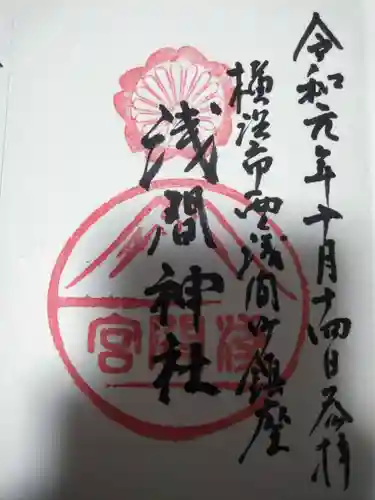 令和元年十月十四日参拝
横浜市西浅間町鎮座
浅間神社
浅間宮